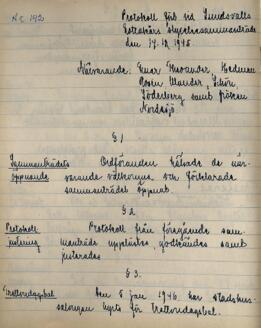 Nr. 142
Protokoll förd vid Sundsvalls
styrelsesammanträde
den 17.12 1945.
Närvarande: Hedman
Rosén
Söderberg samt fröken
Nordsjö
§ 1.
Sammanträdets öppnande
Ordföranden hälsade de när-
varande välkomna och förklarade
sammanträdet öppnat.
§ 2.
Protokoll justering
Protokoll från föregående sam-
manträde upplästes, godkändes samt
justerades
§ 3.
Trettondagsbal
Den 5 jan 1946 har stadshus-
salongen hyrts för trettondagsbal.